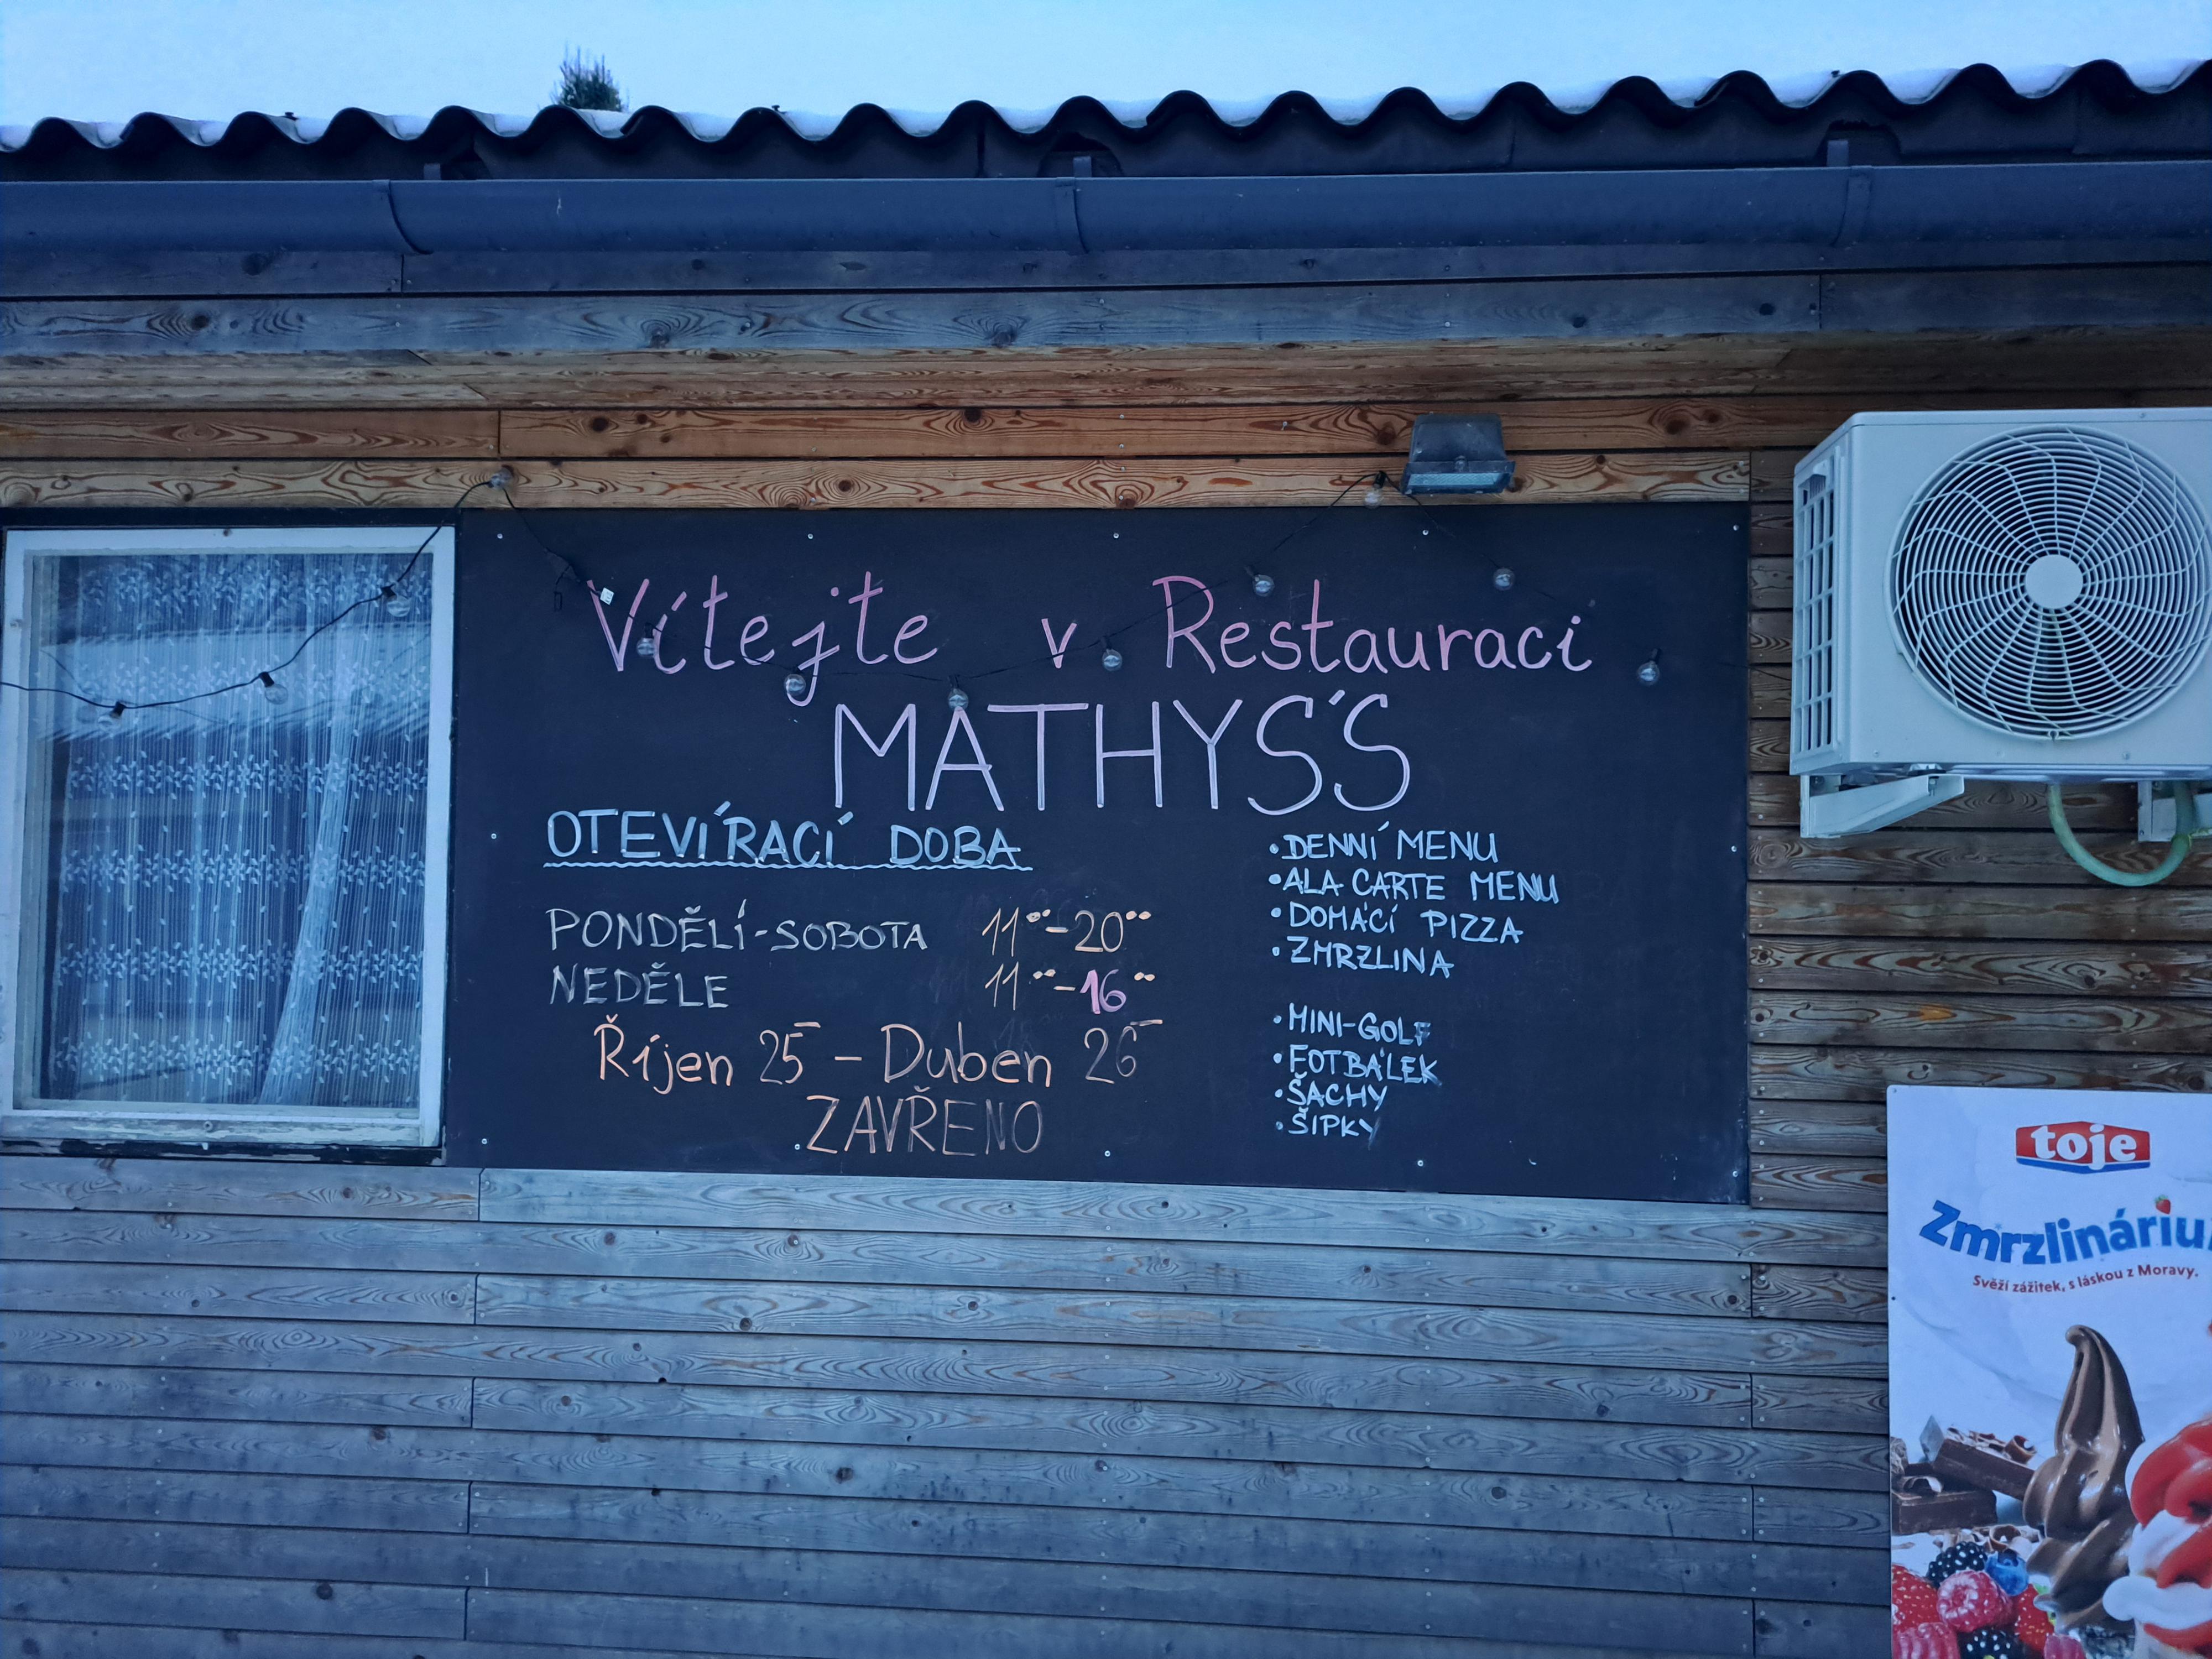 Vítejte v Restauraci
MATHYS'S
OTEVÍRACÍ DOBA
PONDĚLÍ-SOBOTA 11⁰⁰-20⁰⁰
NEDĚLE 11⁰⁰-16⁰⁰
Říjen 25 - Duben 26
ZAVŘENO
• DENNÍ MENU
• ALA CARTE MENU
• DOMÁCÍ PIZZA
• ZMRZLINA
• MINI-GOLF
• FOTBÁLEK
• ŠACHY
• ŠIPKY
toje
Zmrzlináriu
Svěží zážitek, s láskou z Moravy.